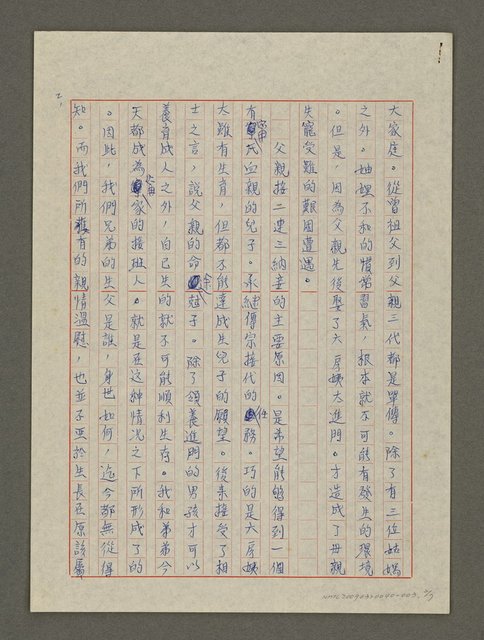 2、
大家庭。從曾祖父到父親三代都是單傳。除了有三位姑媽
之外。妯娌不和的慣常習氣，根本就不可能有發生的環境
。但是，因為父親先後娶了大房姨大進門。才造成了母親
失寵受難的艱困遭遇。
父親接二連三納妾的主要原因。是希望能夠得到一個
有 氏血親的兒子。承繼傳宗接代的任務。巧的是大房姨
太雖有生育，但都不能達成生兒子的願望。後來接受了相
士之言，說父親的命 子。除了領養進門的男孩才可以
養育成人之外，自己生的就不可能順利生存。我和弟弟今
天都成為 家的接班人。就是在這种情況之下所形成了的
。因此，我們兄弟的生父是誰，身世如何，迄今都無從得
知。而我們所擁有的親情溫慰，也並不亞於生長在原該屬
NMTL20090320040-003
2/9